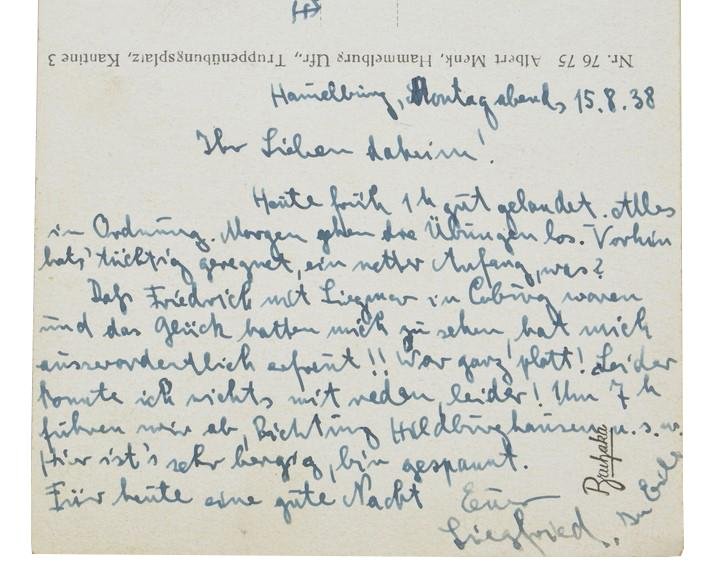 Nr. 76 75 Albert Menk, Hammelburg Ufr., Truppenübungsplatz, Kantine 3
Hammelburg, Montag abend, 15.8.38
Ihr Lieben daheim!
Heute früh 1 h gut gelandet. Alles
in Ordnung. Morgen gehen die Übungen los. Vorhin
hats' tüchtig geregnet, ein netter Anfang, was?
Daß Friedrich mit Siegmar in Coburg waren
und das Glück hatten mich zu sehen, hat mich
ausserordentlich erfreut!! War ganz platt! Leider
konnte ich nichts mit reden, leider! Um 7 h
fuhren wir ab, Richtung Hildburghausen u. s. w.
Hier ist's sehr bergig, bin gespannt.
Für heute eine gute Nacht
Euer
Siegfried.
In Eile